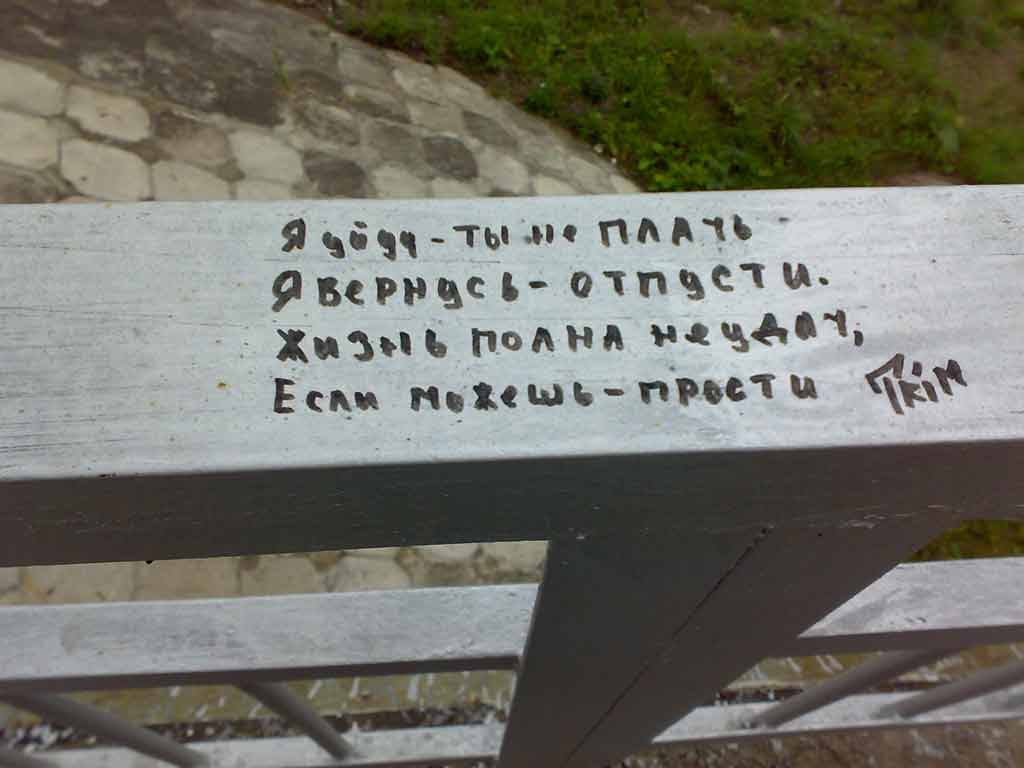 Я уйду - ты не плачь
Я вернусь - отпусти.
Жизнь полна неудач,
Если можешь - прости